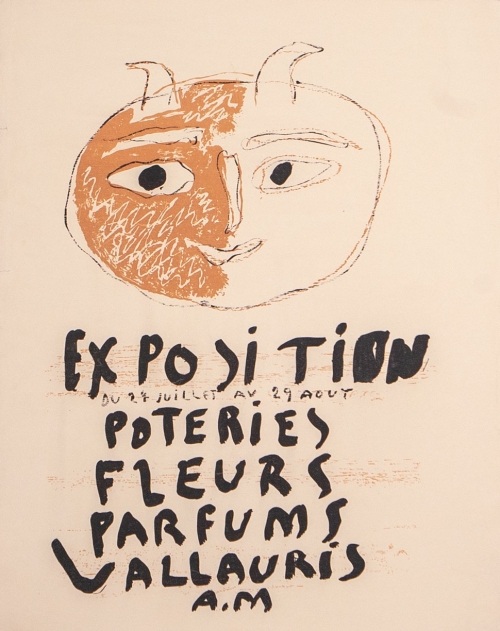 EXPOSITION
DU 27 JUILLET AU 29 AOUT
POTERIES
FLEURS
PARFUMS
VALLAURIS
A.M